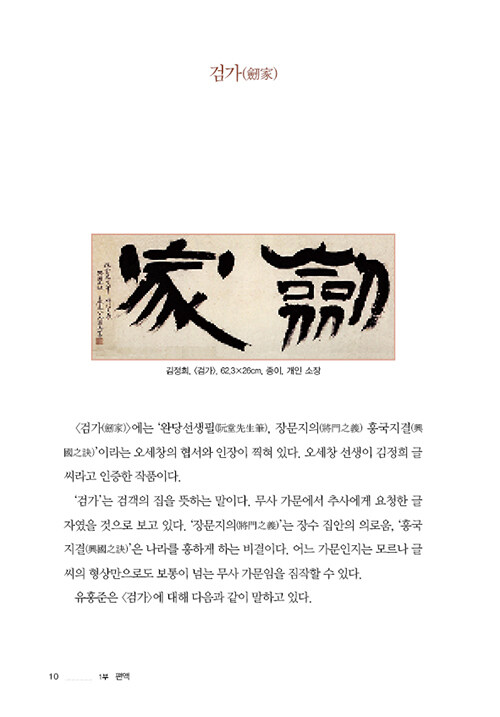 검가(劒家)
劒家
김정희, 〈검가〉, 62.3×26cm, 종이, 개인 소장
〈검가(劒家)〉에는 ‘완당선생필(阮堂先生筆), 장문지의(將門之義) 흥국지결(興
國之訣)’이라는 오세창의 협서와 인장이 찍혀 있다. 오세창 선생이 김정희 글
씨라고 인증한 작품이다.
‘검가’는 검객의 집을 뜻하는 말이다. 무사 가문에서 추사에게 요청한 글
자였을 것으로 보고 있다. ‘장문지의(將門之義)’는 장수 집안의 의로움, ‘흥국
지결(興國之訣)’은 나라를 흥하게 하는 비결이다. 어느 가문인지는 모르나 글
씨의 형상만으로도 보통이 넘는 무사 가문임을 짐작할 수 있다.
유홍준은 〈검가〉에 대해 다음과 같이 말하고 있다.
10 1부 편액